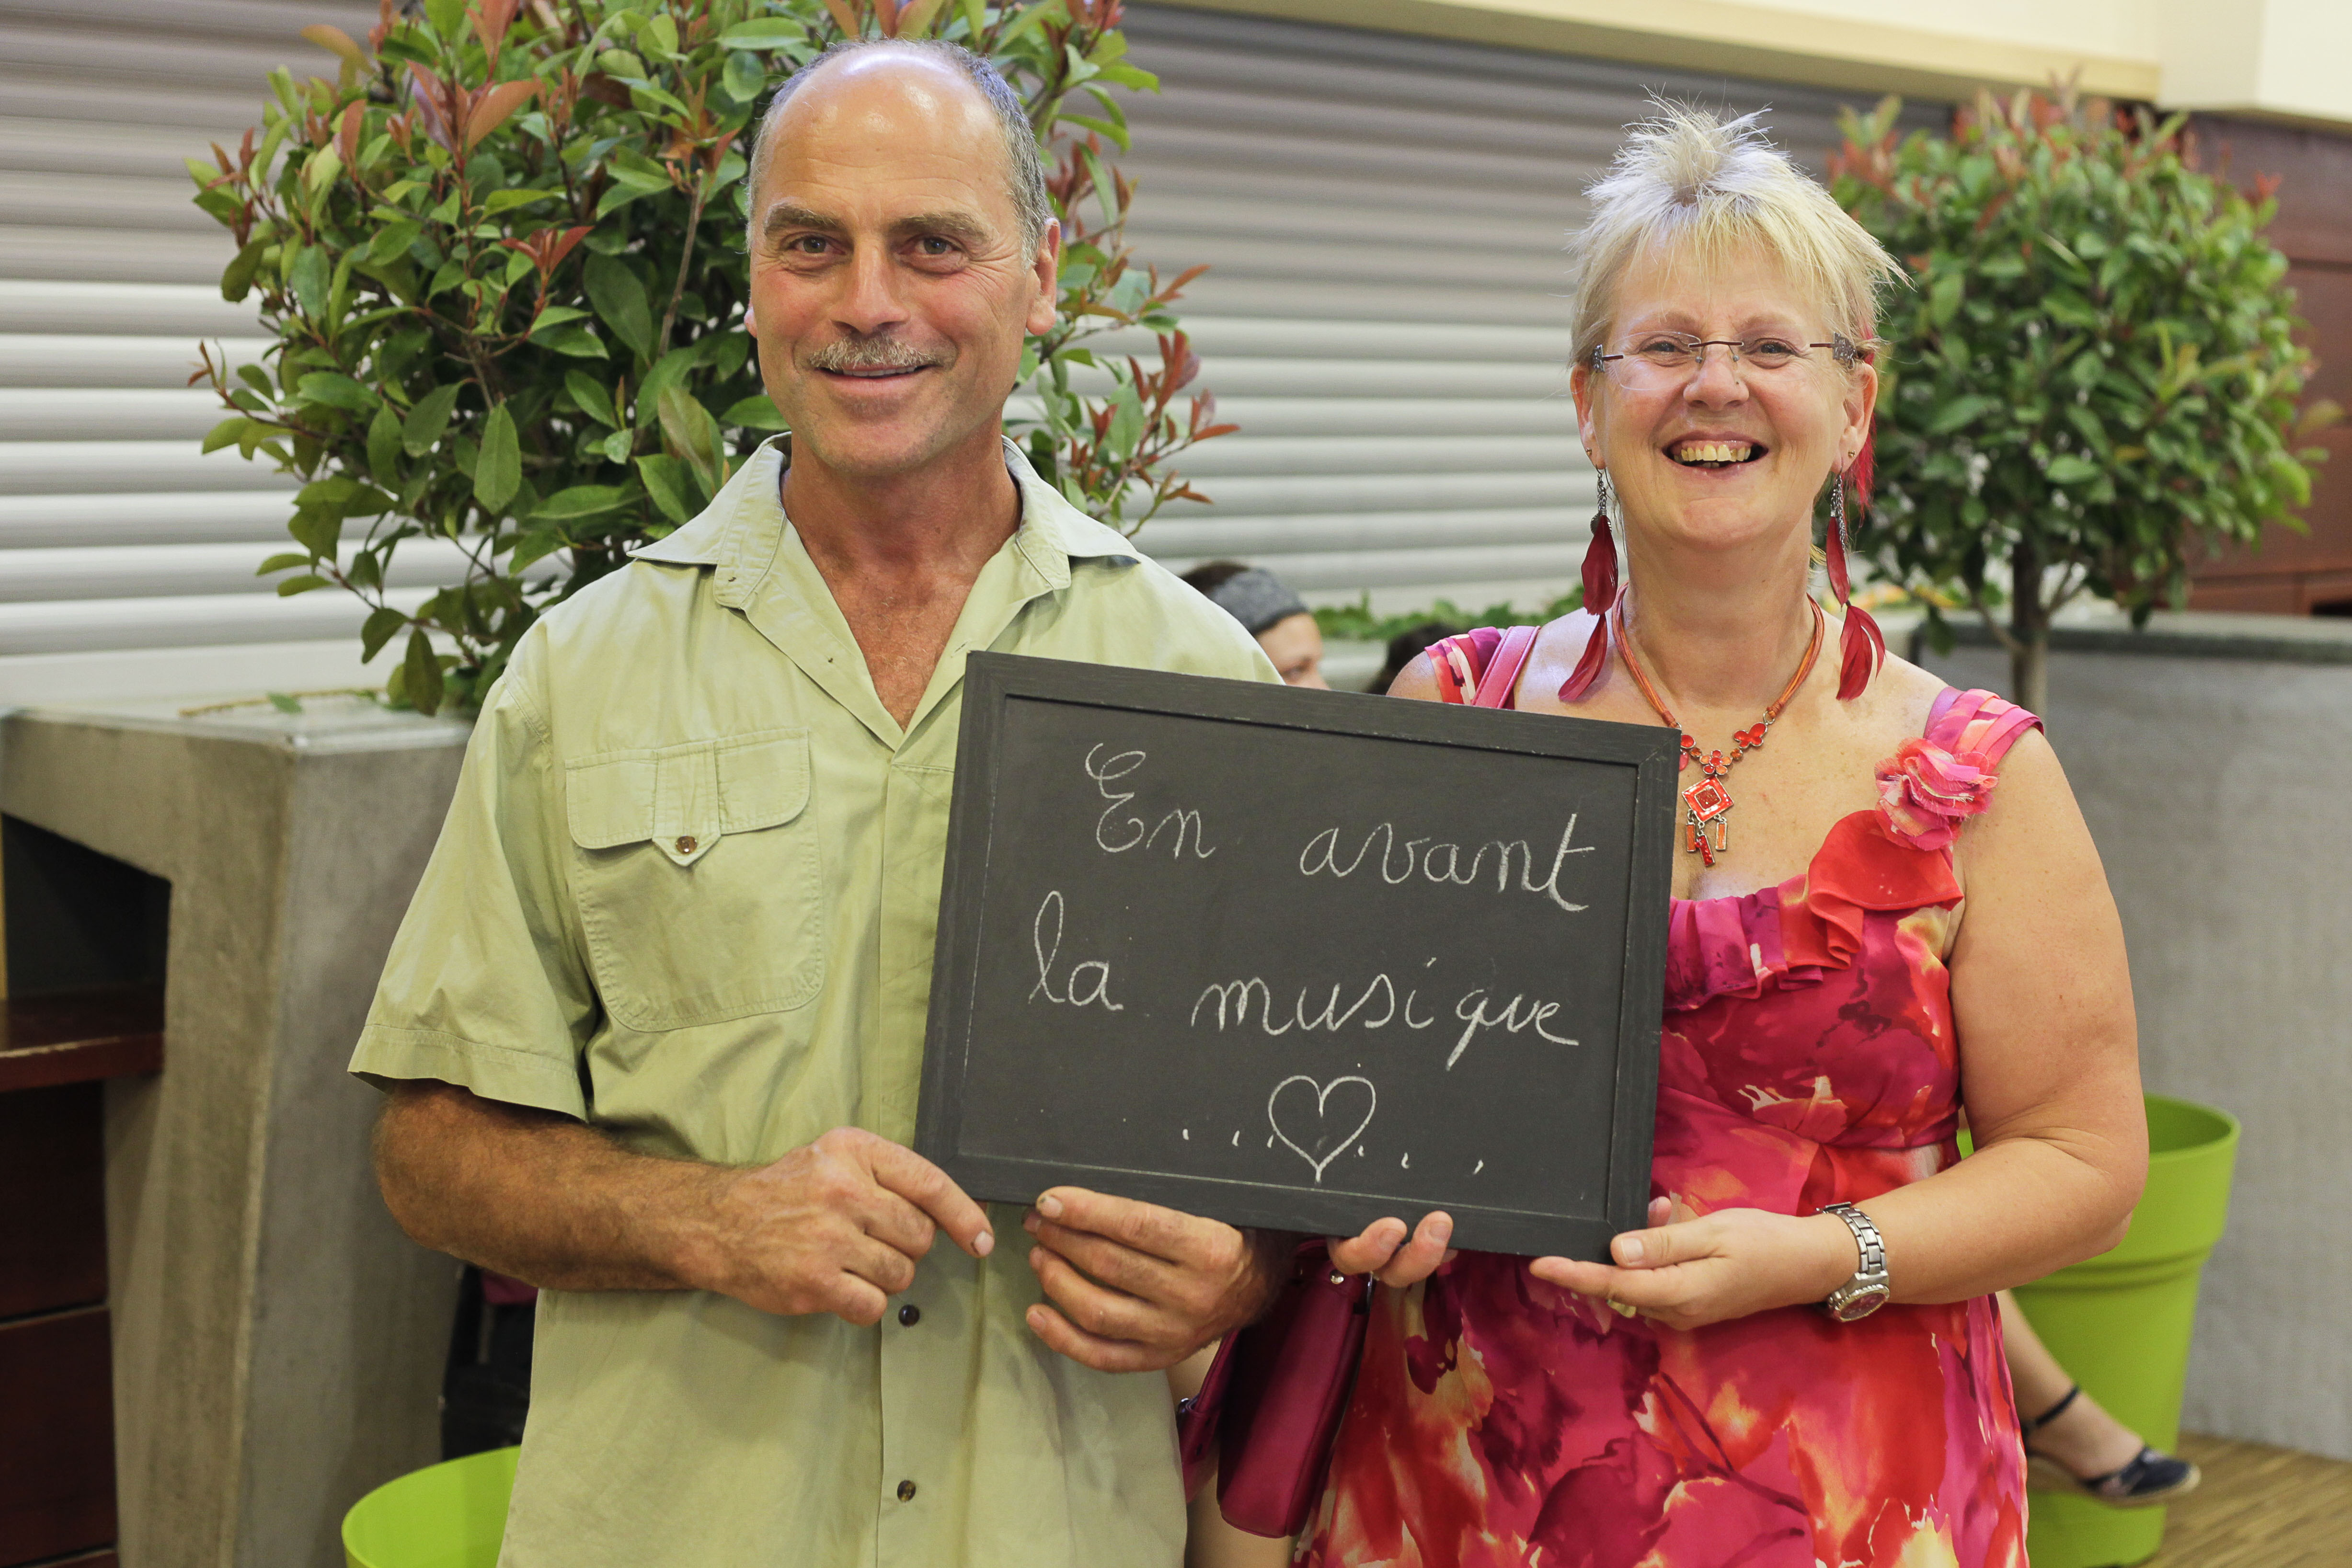 En avant
la musique
...♡....